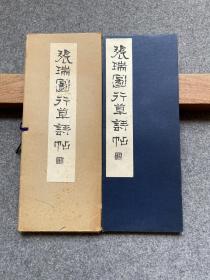 張瑞圖行草詩帖
張瑞圖行草詩帖